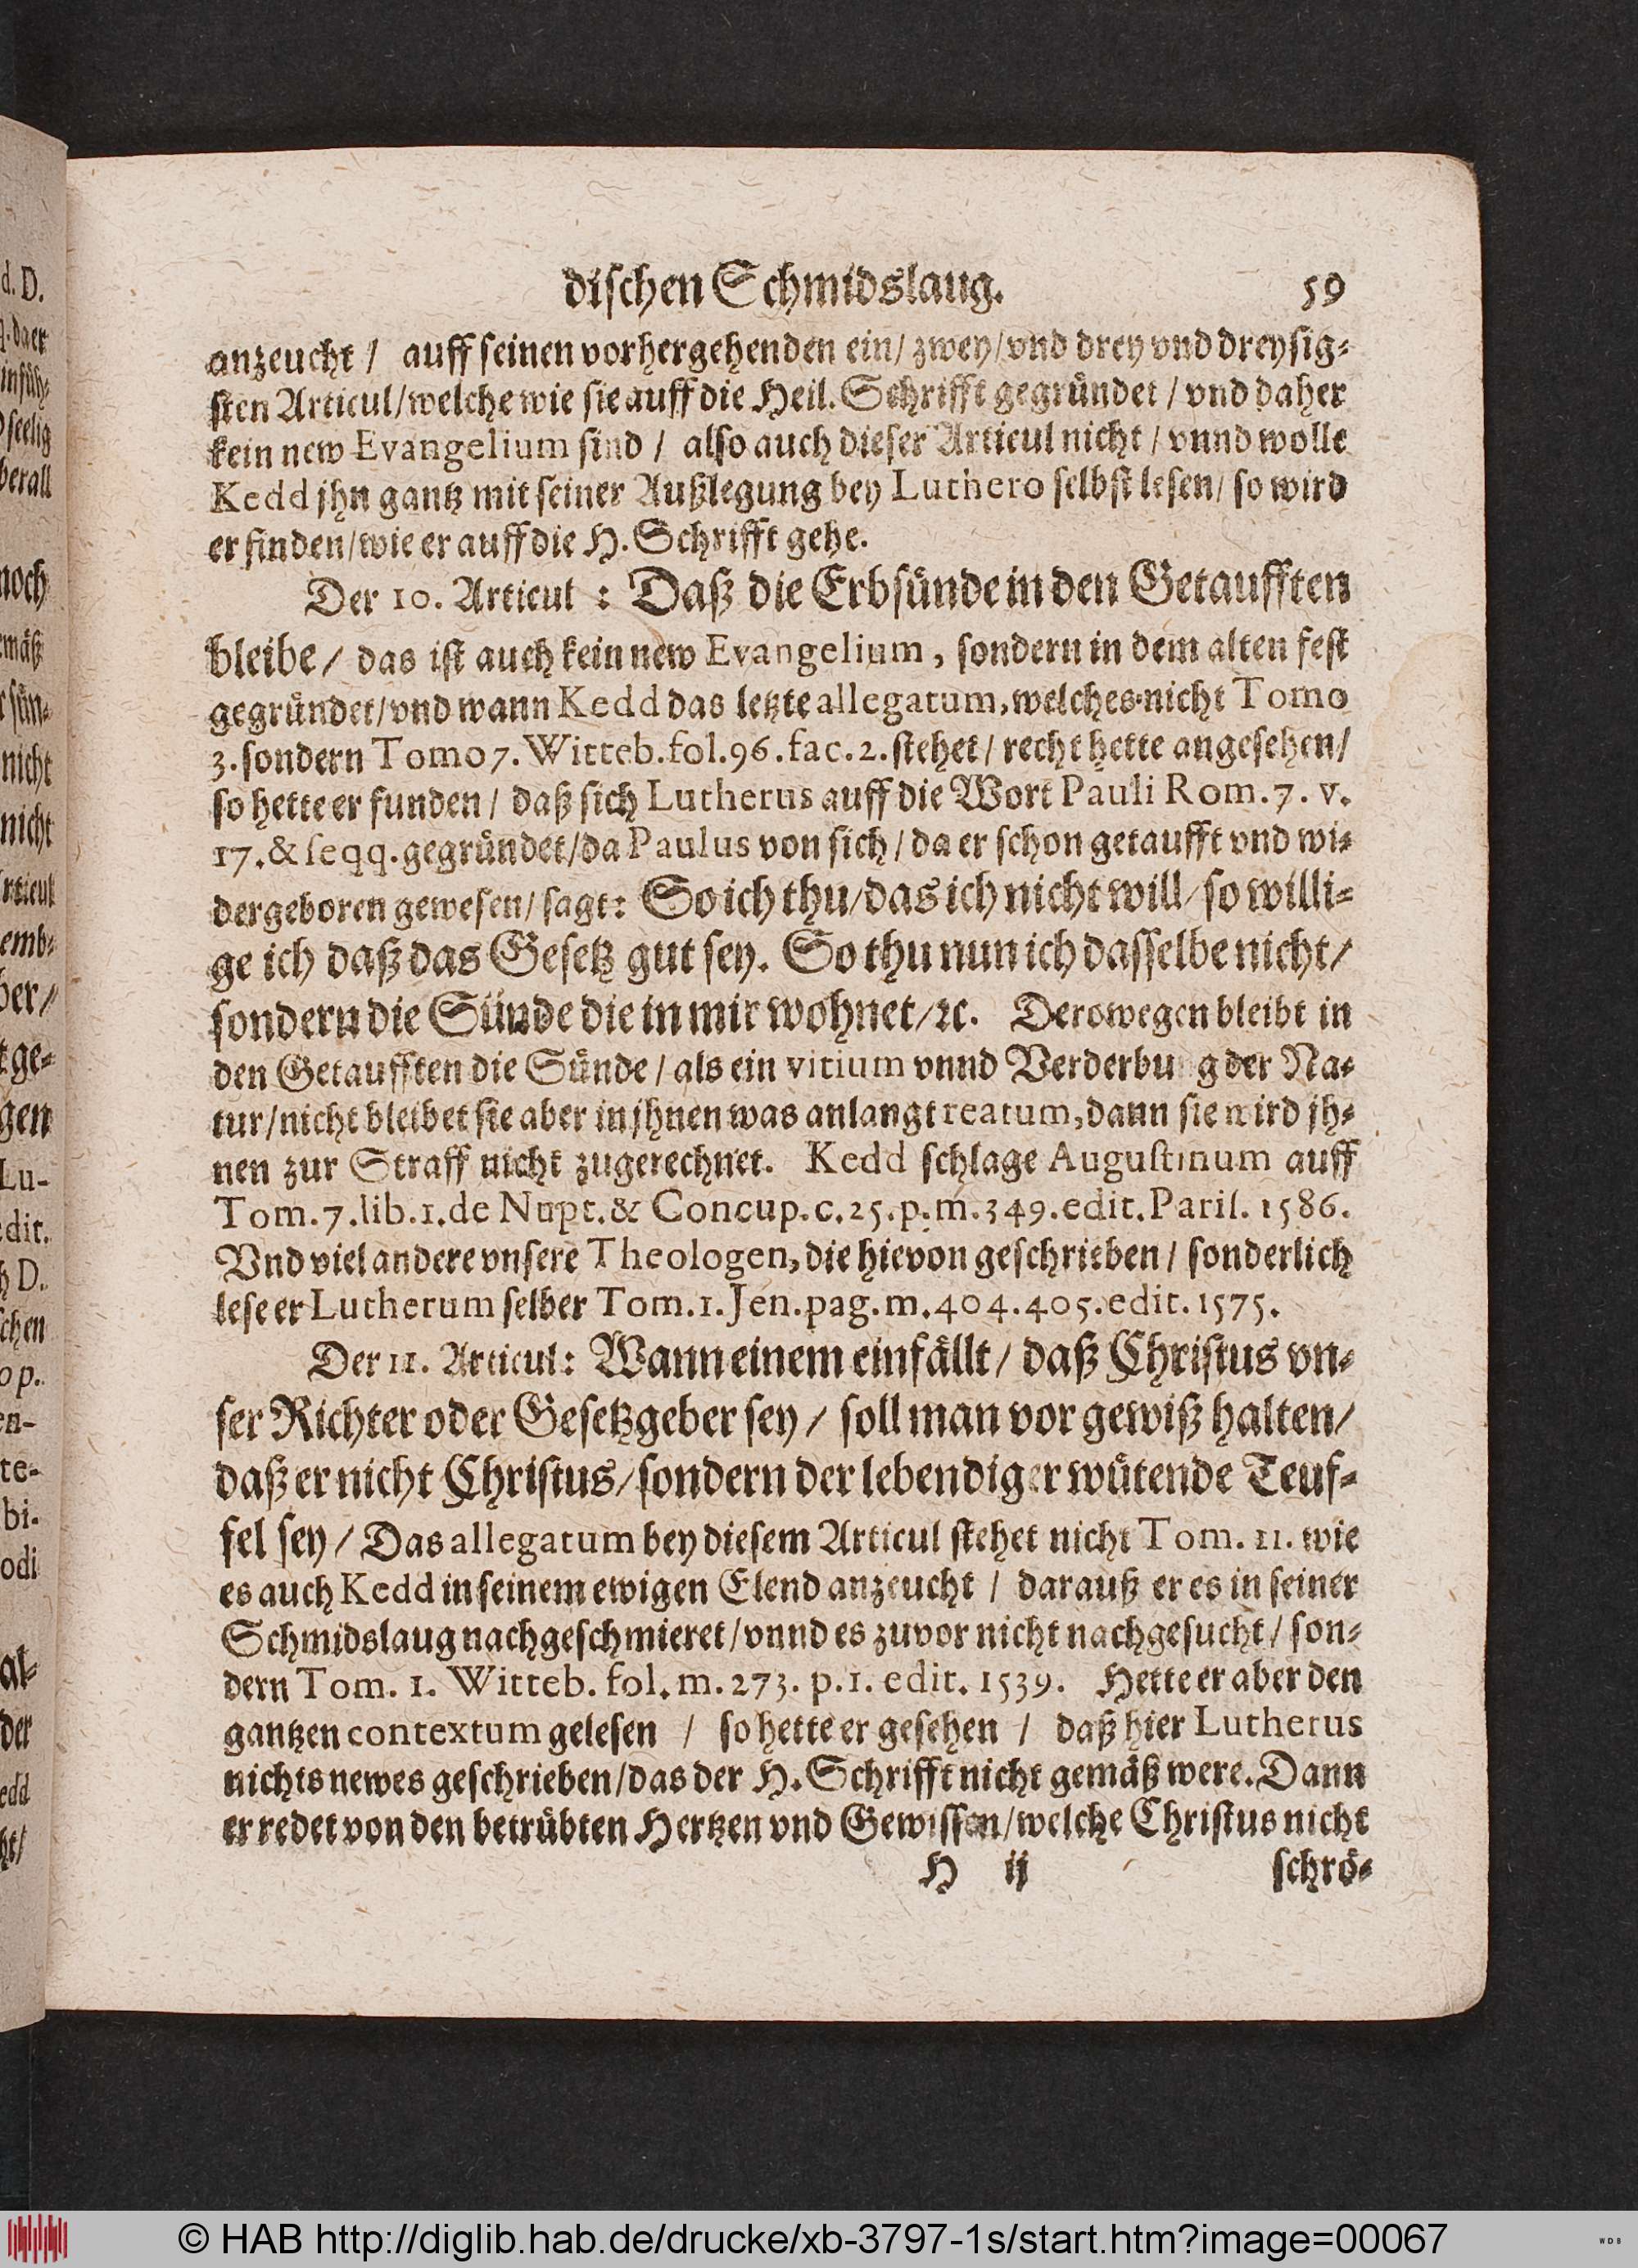 dischen Schmidslaug. 59
anzeucht / auff seinen vorhergehenden ein/ zwey/ vnd drey vnd dreysig⸗
sten Articul/welche wie sie auff die Heil. Schrifft gegründet / vnd daher
kein new Evangelium sind / also auch dieser Articul nicht / vnnd wolle
Kedd jhn gantz mit seiner Außlegung bey Luthero selbst lesen/ so wird
er finden/wie er auff die H. Schrifft gehe.
Der 10. Articul : Daß die Erbsünde in den Getaufften
bleibe/ das ist auch kein new Evangelium, sondern in dem alten fest
gegründet/vnd wann Kedd das letzte allegatum, welches nicht Tomo
3. sondern Tomo 7. Witteb. fol. 96. fac. 2. stehet/ recht hette angesehen/
so hette er funden / daß sich Lutherus auff die Wort Pauli Rom. 7. v.
17. & seqq. gegründet/da Paulus von sich / da er schon getaufft vnd wi⸗
dergeboren gewesen/ sagt: So ich thu/das ich nicht will/ so willi⸗
ge ich daß das Gesetz gut sey. So thu nun ich dasselbe nicht/
sondern die Sünde die in mir wohnet/ꝛc. Derowegen bleibt in
den Getaufften die Sünde / als ein vitium vnnd Verderbung der Na⸗
tur/nicht bleibet sie aber in jhnen was anlangt reatum, dann sie wird jh⸗
nen zur Straff nicht zugerechnet. Kedd schlage Augustinum auff
Tom. 7. lib. 1. de Nupt. & Concup. c. 25. p. m. 349. edit. Paris. 1586.
Vnd viel andere vnsere Theologen, die hievon geschrieben / sonderlich
lese er Lutherum selber Tom. 1. Jen. pag. m. 404. 405. edit. 1575.
Der 11. Articul: Wann einem einfällt / daß Christus vn⸗
ser Richter oder Gesetzgeber sey / soll man vor gewiß halten/
daß er nicht Christus/ sondern der lebendiger wütende Teuf⸗
fel sey / Das allegatum bey diesem Articul stehet nicht Tom. 11. wie
es auch Kedd in seinem ewigen Elend anzeucht / darauß er es in seiner
Schmidslaug nachgeschmieret/vnnd es zuvor nicht nachgesucht / son⸗
dern Tom. 1. Witteb. fol. m. 273. p. 1. edit. 1539. Hette er aber den
gantzen contextum gelesen / so hette er gesehen / daß hier Lutherus
nichts newes geschrieben/das der H. Schrifft nicht gemäß were. Dann
er redet von den betrübten Hertzen vnd Gewissen/welche Christus nicht
H ij schrö⸗
© HAB http://diglib.hab.de/drucke/xb-3797-1s/start.htm?image=00067